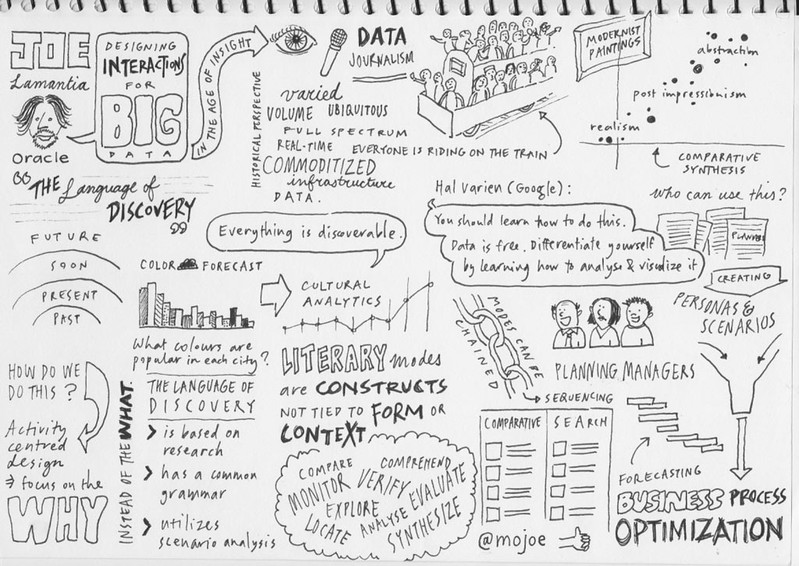 JOE
Lamantia
Oracle
DESIGNING
INTERACTIONS
FOR
BIG
DATA
IN THE AGE OF INSIGHT
"THE Language of
DISCOVERY"
HISTORICAL PERSPECTIVE
DATA
JOURNALISM
varied
VOLUME UBIQUITOUS
FULL SPECTRUM
REAL-TIME
COMMODITIZED
infrastructure
DATA.
EVERYONE IS RIDING ON THE TRAIN
MODERNIST
PAINTINGS
abstraction
post impressionism
realism
COMPARATIVE
SYNTHESIS
Everything is discoverable.
Hal Varien (Google):
You should learn how to do this.
Data is free. Differentiate yourself
by learning how to analyse & visualize it
who can use this?
PLANNING
CREATING
PERSONAS &
SCENARIOS
FUTURE
SOON
PRESENT
PAST
COLOR FORECAST
What colours are
popular in each city?
CULTURAL
ANALYTICS
LITERARY modes
are CONSTRUCTS
NOT TIED TO FORM OR
CONTEXT
MODES CAN BE
CHAINED
SEQUENCING
PLANNING MANAGERS
HOW DO WE
DO THIS?
Activity
centred
design
→ focus on the
WHY
INSTEAD OF THE WHAT.
THE LANGUAGE OF
DISCOVERY
> is based on
research
> has a common
grammar
> utilizes
scenario analysis
COMPARE
COMPREHEND
MONITOR
VERIFY
EVALUATE
EXPLORE
ANALYSE
LOCATE
SYNTHESIZE
COMPARATIVE
SEARCH
@mojoe
FORECASTING
BUSINESS PROCESS
OPTIMIZATION